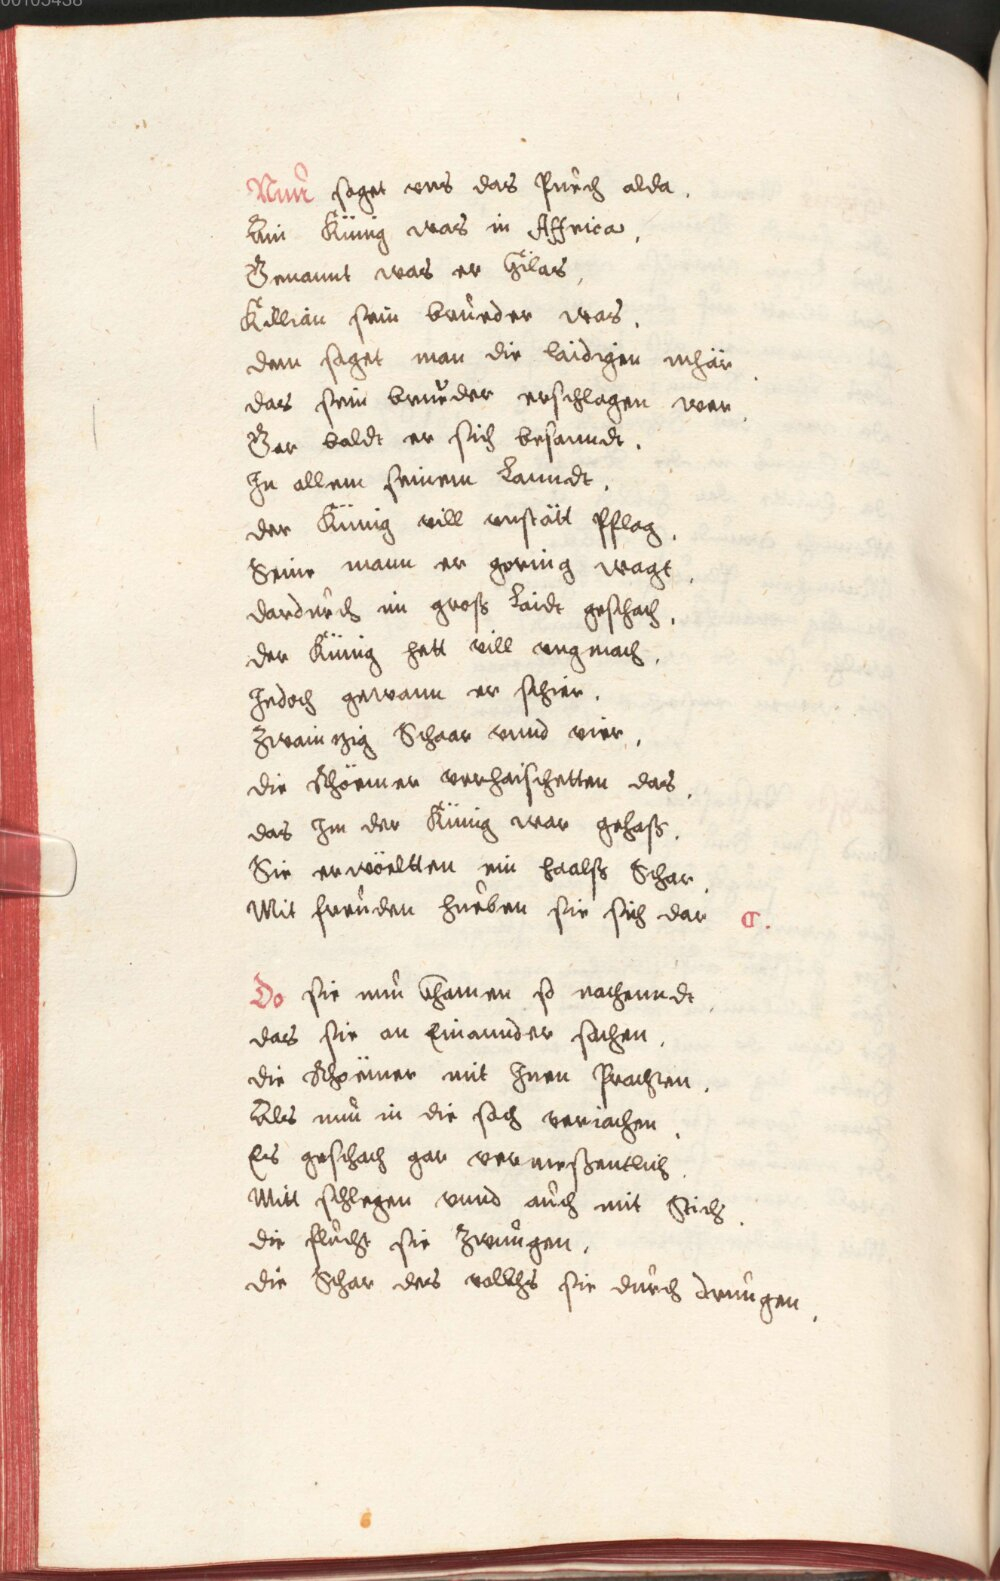 00105438
Nun saget vns das Puech alda.
Ain Künig was in Affrica,
Genannt was er Gilas,
Killian sein brueder was.
dem saget man die laidigen mhär
das sein brueder erschlagen wer.
Gar baldt er sich besanndt.
In allem seinem Lanndt.
der Künig vill vnstätt Pflag.
Seine mann er gering wagt.
dardurch im groß Laidt geschach.
der Künig hett vill vngmach.
Jedoch gewann er schier.
Zwaintzig Schaar vnnd vier.
die Rhöemer verhaischetten das.
das Im der Künig war gehaß.
Sie erwöeltten ein haalß Schar.
Mit freuden hueben sie sich dar
Do sie nun khamen so nachenndt
das sie an Einannder sachen.
die Rhöemer mit Iren Prachten.
Als nun in die sach veriachen.
Es geschach gar vermeßentlich.
Mitt schlegen vnnd auch mit Stich.
die flucht sie Zwungen.
die Schar des vollkhs sie durch drungen.